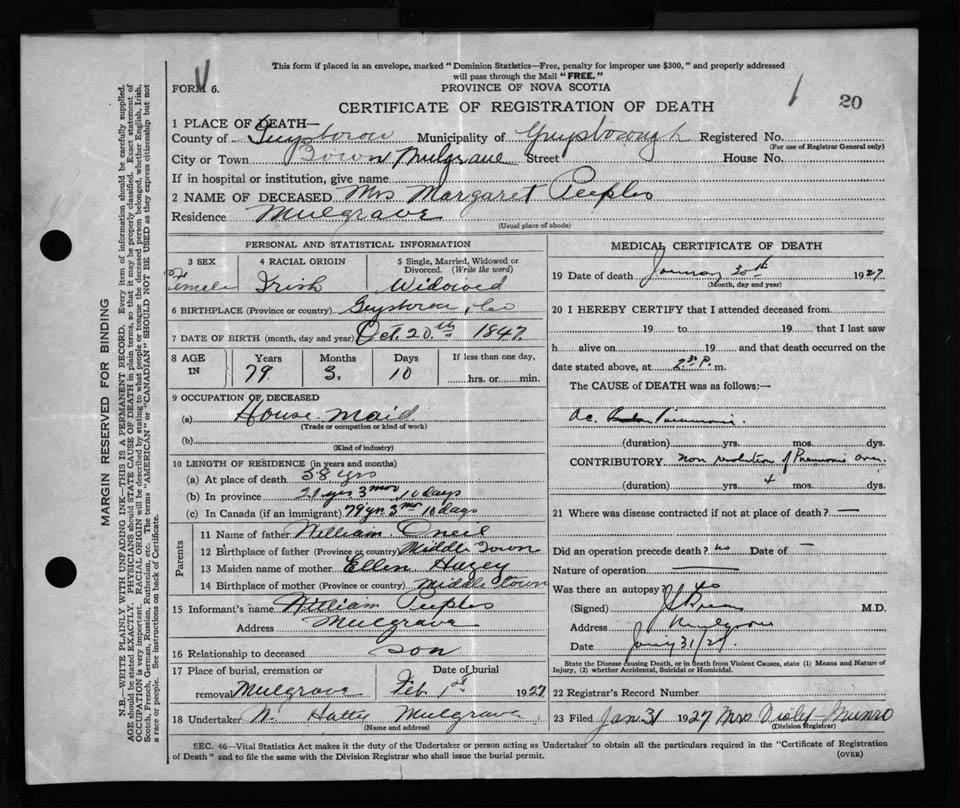 This form if placed in an envelope, marked "Dominion Statistics—Free, penalty for improper use $300," and properly addressed
will pass through the Mail "FREE."
FORM 6.
PROVINCE OF NOVA SCOTIA
CERTIFICATE OF REGISTRATION OF DEATH
1 20
1 PLACE OF DEATH—
County of Guysboro Municipality of Guysborough Registered No.
(For use of Registrar General only)
City or Town Town Mulgrave Street House No.
If in hospital or institution, give name
2 NAME OF DECEASED Mrs Margaret Peeples
Residence Mulgrave
(Usual place of abode)
PERSONAL AND STATISTICAL INFORMATION
3 SEX 4 RACIAL ORIGIN 5 Single, Married, Widowed or Divorced. (Write the word)
Female Irish Widowed
6 BIRTHPLACE (Province or country) Guysboro, Co
7 DATE OF BIRTH (month, day and year) Oct. 20th 1847.
8 AGE IN Years Months Days If less than one day,
79 3. 10 hrs. or min.
9 OCCUPATION OF DECEASED
(a) House-maid
(Trade or occupation or kind of work)
(b)
(Kind of industry)
10 LENGTH OF RESIDENCE (in years and months)
(a) At place of death 58 yrs
(b) In province yrs 3 mos 10 days
(c) In Canada (if an immigrant) 79 yr. 3 mos 10 days
Parents
11 Name of father William Oneil
12 Birthplace of father (Province or country) Middle Town
13 Maiden name of mother Ellen Hazey
14 Birthplace of mother (Province or country) Middle town
15 Informant's name William Peeples
Address Mulgrave
16 Relationship to deceased son
17 Place of burial, cremation or Date of burial
removal Mulgrave Feb 1st 1927
18 Undertaker W. Hatty Mulgrave
(Name and address)
MEDICAL CERTIFICATE OF DEATH
19 Date of death January 30th 1927
(Month, day and year)
20 I HEREBY CERTIFY that I attended deceased from
19 to 19 that I last saw
h alive on 19 and that death occurred on
date stated above, at 2.30 P. m.
The CAUSE of DEATH was as follows:—
Ac. Pneumonia.
(duration) yrs. mos. dys.
CONTRIBUTORY non resolution of Pneumonic area
(duration) yrs. + mos. dys.
21 Where was disease contracted if not at place of death? —
Did an operation precede death? no Date of —
Nature of operation —
Was there an autopsy? no
(Signed) M.D.
Address Mulgrave
Date Jany 31/27
State the Disease causing Death, or in death from Violent Causes, state (1) Means and Nature of
Injury, (2) whether Accidental, Suicidal or Homicidal.
22 Registrar's Record Number
23 Filed Jan 31 1927 Mrs Violet Munro
(Division Registrar)
SEC. 46—Vital Statistics Act makes it the duty of the Undertaker or person acting as Undertaker to obtain all the particulars required in the "Certificate of Registration
of Death" and to file the same with the Division Registrar who shall issue the burial permit.
(OVER)
MARGIN RESERVED FOR BINDING
N.B.—WRITE PLAINLY WITH UNFADING INK—THIS IS A PERMANENT RECORD. Every item of information should be carefully supplied.
AGE should be stated EXACTLY. PHYSICIANS should STATE CAUSE OF DEATH in plain terms, so that it may be properly classified. Exact statement of
OCCUPATION is very important. RACIAL ORIGIN will be described by stating to what people or tongue the deceased person belonged, whether English, Irish,
Scotch, French, German, Russian, Ruthenian, etc. The terms "AMERICAN" or "CANADIAN" SHOULD NOT BE USED as they express citizenship but not
a race or people. See instructions on back of Certificate.